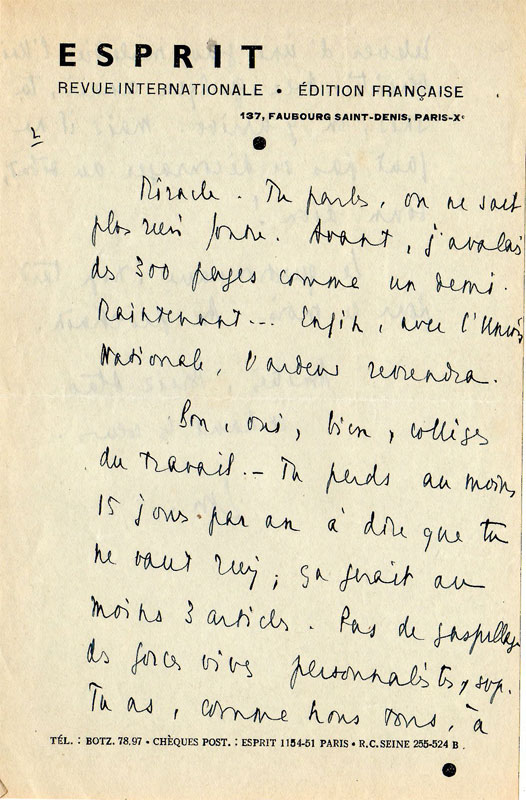 ESPRIT
REVUE INTERNATIONALE • ÉDITION FRANÇAISE
137, FAUBOURG SAINT-DENIS, PARIS-Xe
2
Miracle. Tu parles, on ne sait
plus rien foutre. Avant, j'avalais
des 300 pages comme un demi.
Maintenant... Enfin, avec l'Union
Nationale, l'ardeur reviendra.
Bon, oui, bien, collèges
du travail. – Tu perds au moins
15 jours par an à dire que tu
ne vaux rien ; ça ferait au
moins 3 articles. Pas de gaspillage
des forces vives personnalistes, svp.
Tu as, comme nous tous, à
TÉL. : BOTZ. 78.97 • CHÈQUES POST. : ESPRIT 1154-51 PARIS • R.C. SEINE 255-524 B.